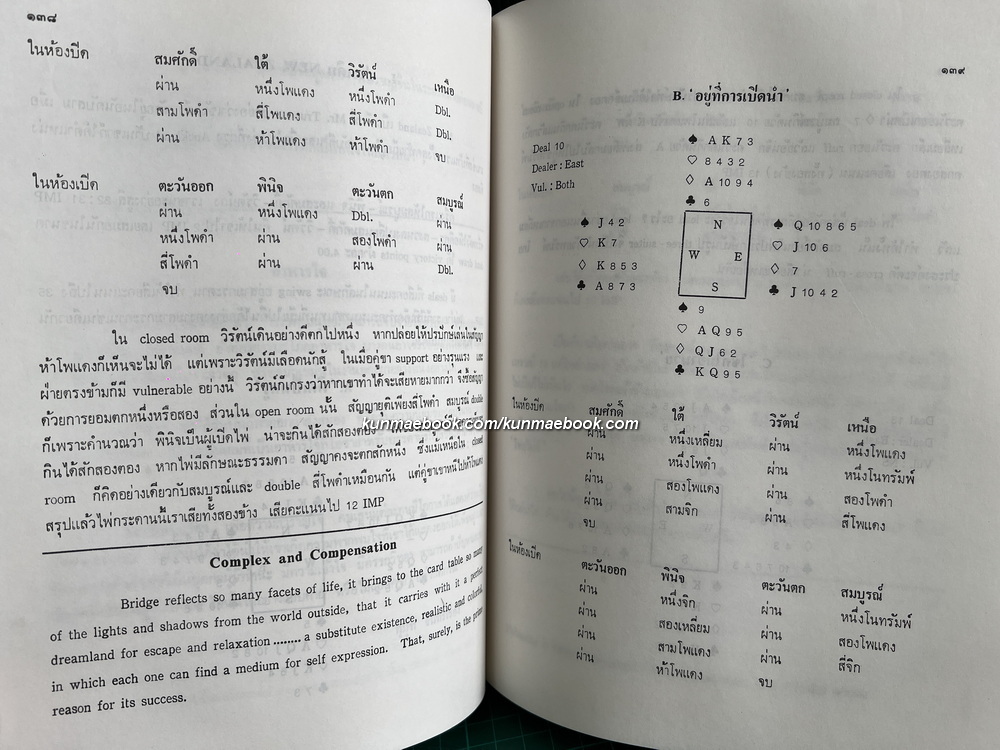 ๑๓๘
ในห้องปิด
สมศักดิ์ ใต้ วิรัตน์ เหนือ
ผ่าน หนึ่งโพแดง หนึ่งโพดำ Dbl.
สามโพดำ สี่โพแดง สี่โพดำ Dbl.
ผ่าน ห้าโพแดง ห้าโพดำ จบ
ในห้องเปิด ตะวันออก พินิจ ตะวันตก สมบูรณ์
ผ่าน หนึ่งโพแดง Dbl. ผ่าน
หนึ่งโพดำ ผ่าน สองโพดำ ผ่าน
สี่โพดำ ผ่าน ผ่าน Dbl.
จบ
ใน closed room วิรัตน์เดินอย่างดีตกไปหนึ่ง หากปล่อยให้ปรปักษ์เล่นในสัญญา
ห้าโพแดงก็เห็นจะไม่ได้ แต่เพราะวิรัตน์มีเลือดนักสู้ ในเมื่อคู่ขา support อย่างรุนแรง และ
ฝ่ายตรงข้ามก็มี vulnerable อย่างนี้ วิรัตน์ก็เกรงว่าหากเขาทำได้จะเสียหายมากกว่า จึงซื้อสัญญา
ด้วยการยอมตกหนึ่งหรือสอง ส่วนใน open room นั้น สัญญายุติเพียงสี่โพดำ สมบูรณ์ double
ก็เพราะคำนวณว่า พินิจเป็นผู้เปิดไพ่ น่าจะกินได้สักสองตอง
กินได้สักสองตอง หากไพ่มีลักษณะธรรมดา สัญญาคงจะตกสักหนึ่ง ซึ่งแม้เหนือใน closed
room ก็คิดอย่างเดียวกับสมบูรณ์และ double สี่โพดำเหมือนกัน แต่คู่ขาเขาหนีไปห้าโพแดง
สรุปแล้วไพ่กระดานนี้เราเสียทั้งสองข้าง เสียคะแนนไป 12 IMP
Complex and Compensation
Bridge reflects so many facets of life, it brings to the card table so many
of the lights and shadows from the world outside, that it carries with it a perfect
dreamland for escape and relaxation ........ a substitute existence, realistic and colorful,
in which each one can find a medium for self expression. That, surely, is the prime
reason for its success.
๑๓๙
B. ' อยู่ที่การเปิดนำ '
Deal 10
Dealer : East
Vul. : Both
♠ A K 7 3
♡ 8 4 3 2
◇ A 10 9 4
♣ 6
♠ J 4 2
♡ K 7
◇ K 8 5 3
♣ A 8 7 3
N
W E
S
♠ Q 10 8 6 5
♡ J 10 6
◇ 7
♣ J 10 4 2
♠ 9
♡ A Q 9 5
◇ Q J 6 2
♣ K Q 9 5
ในห้องปิด สมศักดิ์ ใต้ วิรัตน์ เหนือ
ผ่าน หนึ่งเหลี่ยม ผ่าน หนึ่งโพแดง
ผ่าน หนึ่งโพดำ ผ่าน หนึ่งโนทรัมพ์
ผ่าน สองโพแดง ผ่าน สองโพดำ
ผ่าน สามจิก ผ่าน สี่โพแดง
จบ
ในห้องเปิด ตะวันออก พินิจ ตะวันตก สมบูรณ์
ผ่าน หนึ่งจิก ผ่าน หนึ่งโนทรัมพ์
ผ่าน สองเหลี่ยม ผ่าน สองโพแดง
ผ่าน สามโพแดง ผ่าน สี่จิก
ผ่าน ห้าโพแดง จบ
kunmaebook.com/kunmaebook.com